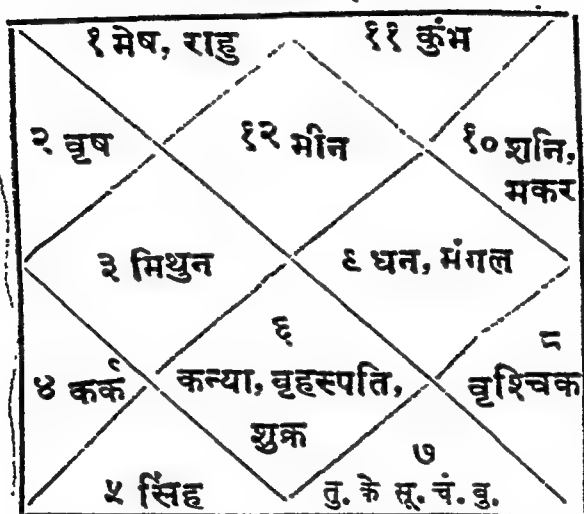 १ मेष, राहु
११ कुंभ
२ वृष
१२ मीन
१० शनि,
मकर
३ मिथुन
९ धन, मंगल
४ कर्क
६
कन्या, वृहस्पति,
शुक्र
८
वृश्चिक
५ सिंह
७
तु. के सू. चं. बु.